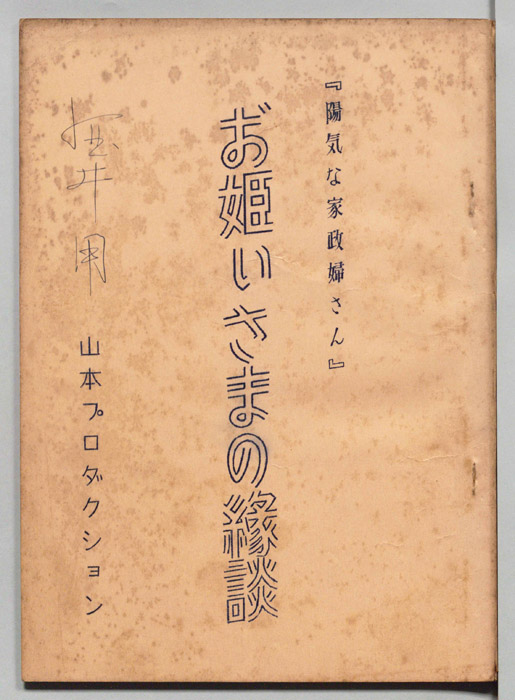 『陽気な家政婦さん』
お姫いさまの縁談
山本プロダクション